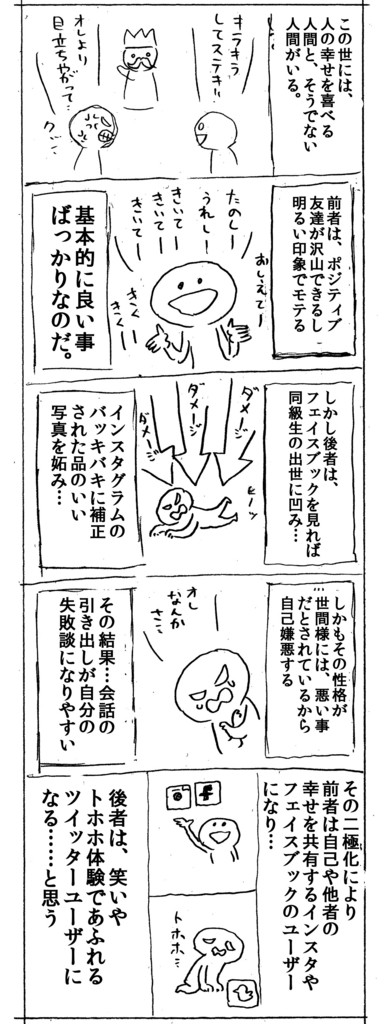 この世には、
人の幸せを喜べる
人間と、そうでない
人間がいる。
キラキラ
してステキ!!
オレより
目立ちやがって…
前者は、ポジティブ
友達が沢山できるし
明るい印象でモテる
おしえてー
たのしー
うれしー
きいてー
きいてー
きいてー
きくー
きくー
基本的に良い事
ばっかりなのだ。
しかし後者は、
フェイスブックを見れば
同級生の出世に凹み…
ダメージ
ダメージ
ダメージ
ヒーッ
インスタグラムの
バッキバキに補正
された品のいい
写真を妬み…
しかもその性格が
世間様には、悪い事
だとされているから
自己嫌悪する
オレ
なんか
さ…
その結果…会話の
引き出しが自分の
失敗談になりやすい
その二極化により
前者は自己や他者の
幸せを共有するインスタや
フェイスブックのユーザー
になり…
f
トホホ…
後者は、笑いや
トホホ体験であふれる
ツイッターユーザーに
なる……と思う